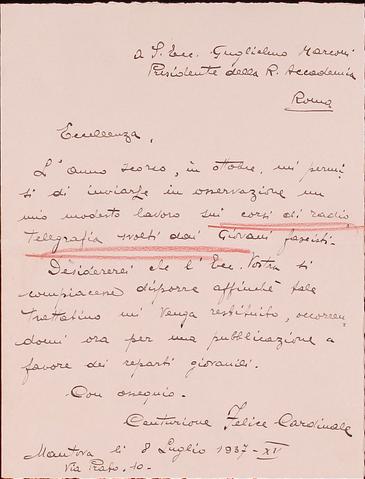 A S. Ecc. Guglielmo Marconi
Presidente della R. Accademia
Roma
Eccellenza,
L'anno scorso, in ottobre, mi permi
si di inviarLe in osservazione un
mio modesto lavoro sui corsi di radio
telegrafia svolti dai Giovani fascisti.
Desidererei che l'Ecc. Vostra si
compiacesse disporre affinchè tale
trattatino mi venga restituito, occorren
domi ora per una pubblicazione a
favore dei reparti giovanili.
Con ossequio.
Centurione Felice Cardinale
Mantova li 8 Luglio 1937-XV
Via Prato, 10-